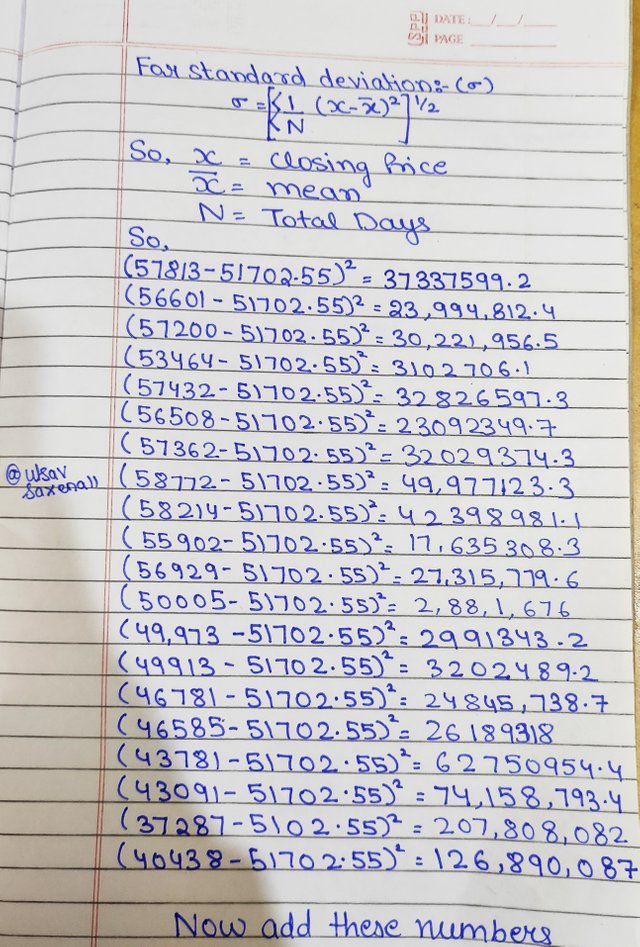 SPP DATE: __/__/__
PAGE
For standard deviation:- (σ)
σ = [Σ 1/N (x-x̄)²]^1/2
So, x = Closing Price
x̄ = mean
N = Total Days
So,
(57813-51702.55)² = 37337599.2
(56601-51702.55)² = 23,994,812.4
(57200-51702.55)² = 30,221,956.5
(53464-51702.55)² = 3102706.1
(57432-51702.55)² = 32826597.3
(56508-51702.55)² = 23092349.7
(57362-51702.55)² = 32029374.3
@utsav
saxena11
(58772-51702.55)² = 49,977123.3
(58214-51702.55)² = 42398981.1
(55902-51702.55)² = 17,635308.3
(56929-51702.55)² = 27,315,779.6
(50005-51702.55)² = 2,88,1,676
(49,973-51702.55)² = 2991343.2
(49913-51702.55)² = 3202489.2
(46781-51702.55)² = 24845,738.7
(46585-51702.55)² = 26189318
(43781-51702.55)² = 62750954.4
(43091-51702.55)² = 74,158,793.4
(37287-5102.55)² = 207,808,082
(40438-51702.55)² = 126,890,087
Now add these numbers